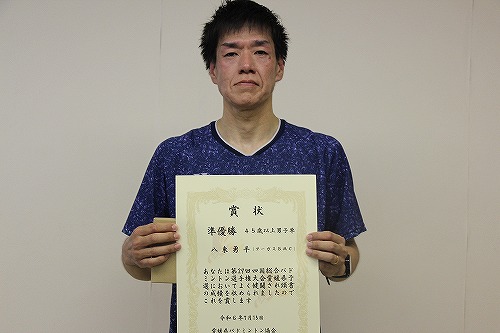 賞状
準優勝 45歳以上男子単
八束勇平(サーカスBMC)
あなたは第29回四国総合バド
ミントン選手権大会愛媛県予
選において よく健闘され頭書
の成績を収められましたので
これを賞します
令和6年7月15日
愛媛県バドミントン協会